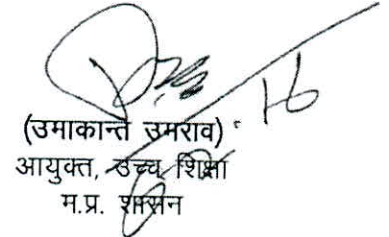 (उमाकान्त उमराव)
आयुक्त, उच्च शिक्षा
म.प्र. शासन